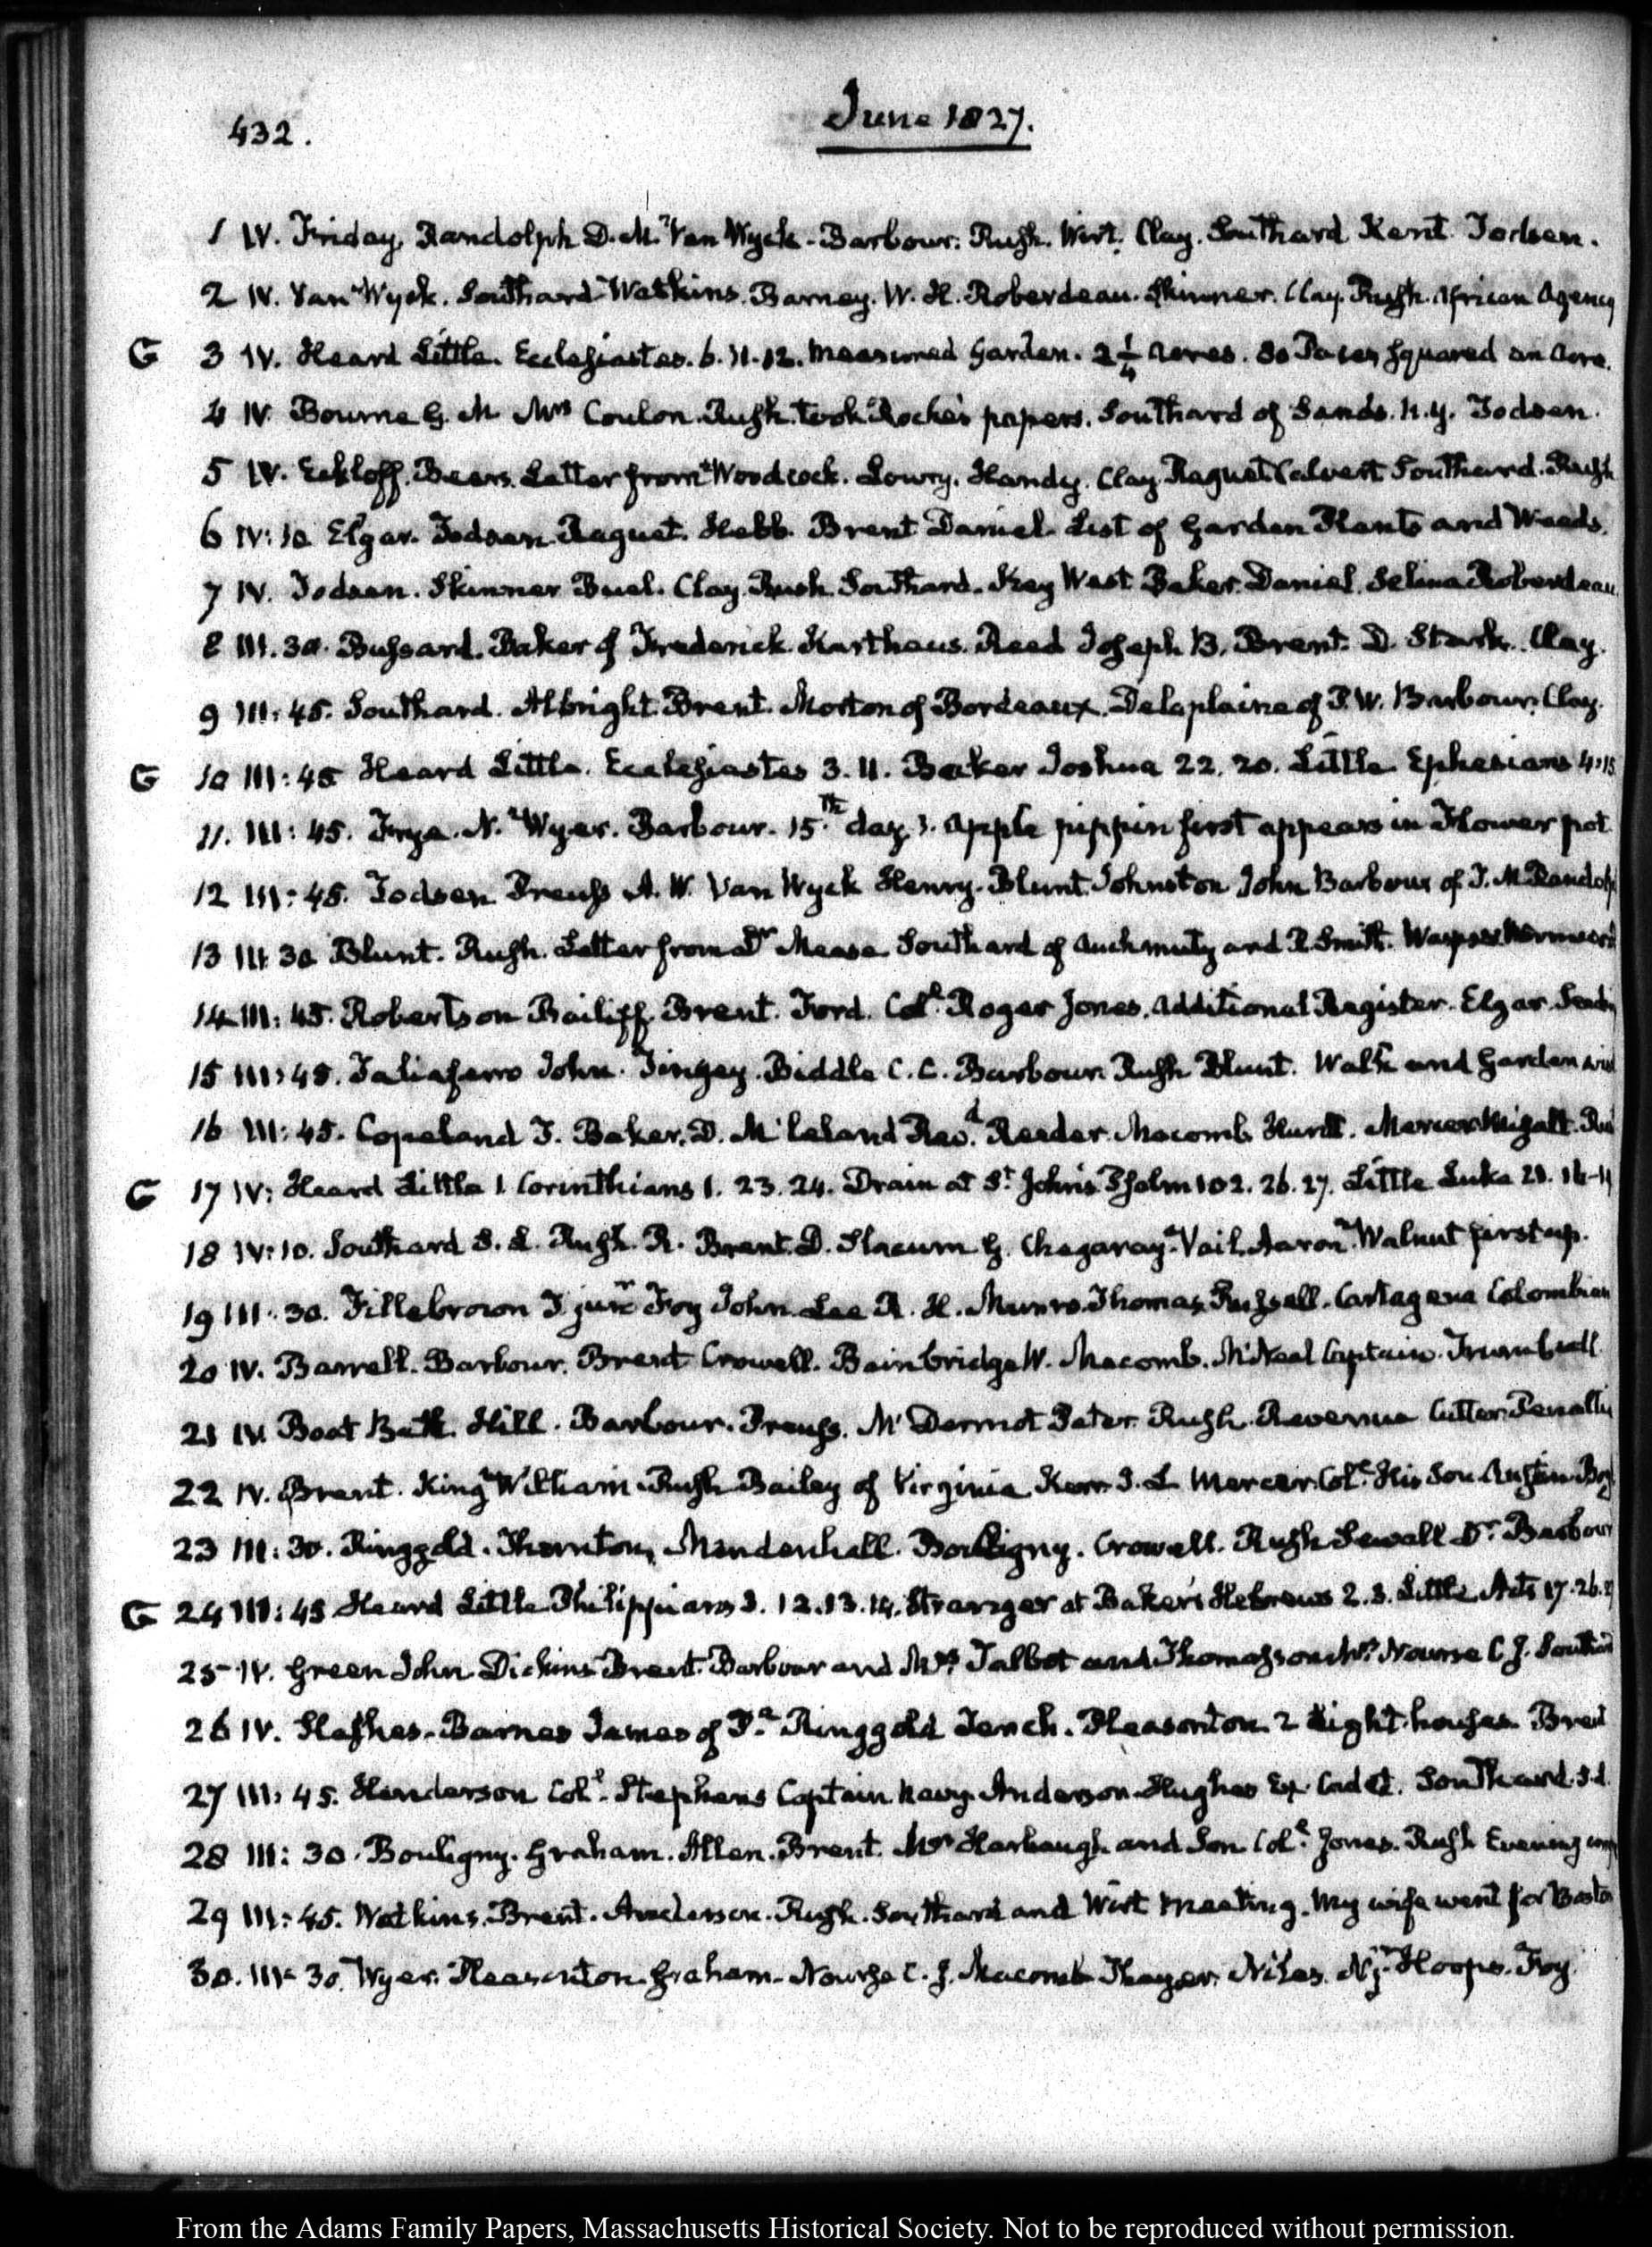 432.
June 1827.
1 IV. Friday. Randolph D. M. Van Wyck. Barbour. Rush. Wirt. Clay. Southard. Kent. Todsen.
2 IV. Van Wyck. Southard. Watkins. Barney. W. H. Roberdeau. Skinner. Clay. Rush. African Agency
G 3 IV. Heard Little. Ecclesiastes. 6. 11. 12. Measured Garden. 2 1/4 Acres. 80 Paces squared an Acre.
4 IV. Bourne G. M Mrs Coulon. Rush. took Roche's papers. Southard of Sands. N.Y. Todsen.
5 IV. Eckloff. Beers. Letter from Woodcock. Lowry. Handy. Clay. Raguet. Calvert Southard. Rush
6 IV: 10 Elgar. Todsen Raguet. Hebb. Brent Daniel. List of Garden Plants and Weeds.
7 IV. Todsen. Skinner Buel. Clay. Rush. Southard. Key West Baker. Daniel. Selina Roberdeau
8 III. 30. Bussard. Baker of Frederick. Karthaus. Reed Joseph B. Brent. D. Stark. Clay.
9 III: 45. Southard. Albright. Brent. Morton of Bordeaux. Delaplaine of P. W. Barbour. Clay.
G 10 III: 45 Heard Little. Ecclesiastes 3. 11. Baker Joshua 22. 20. Little Ephesians 4. 15
11. III: 45. Frye. N. Wyer. Barbour. 15th day. Apple pippin first appears in Flower pot.
12 III: 45. Todsen Preuss A. W. Van Wyck Henry. Blunt. Johnston John Barbour of T. M. Randolph
13 III 30 Blunt. Rush. Letter from Dr Mease Southard of Auchmuty and R Smith.
14 III: 45. Robertson Bailiff. Brent. Ford. Coll. Roger Jones. Additional Register. Elgar.
15 III: 45. Taliaferro John. Tingey. Biddle C. C. Barbour. Rush Blunt. Walk and Garden
16 III: 45. Copeland J. Baker. D. McLeland Revd. Reeder. Macomb. Hunt. Mercer
G 17 IV: Heard Little 1. Corinthians 1. 23. 24. Drain at St. John's Psalm 102. 26. 27. Little Luke
18 IV: 10. Southard S. L. Rush. R. Brent. D. Slacum G. Chegaray. Vail. Aaron. Walnut first up.
19 III. 30. Fillebrown T. junr Foy John. Lee R. H. Munro. Thomas Russell. Cartagena Colombian
20 IV. Barrell. Barbour. Brent Crowell. Bainbridge W. Macomb. McNeal Captain. Trumbull.
21 IV. Boat Bath. Hill. Barbour. Preuss. McDermot Peter. Rush. Revenue Cutter. Penalty
22 IV. Brent. King William. Rush Bailey of Virginia Kerr J. L Mercer. Coll. His Son
23 III: 30. Ringgold. Thornton, Mendenhall. Bouligny. Crowell. Rush Sewall Dr. Barbour
G 24 III: 45 Heard Little Philippians 3. 12. 13. 14. Stranger at Baker's Hebrews 2. 3. Little. Acts 17. 26.
25 IV. Green John Dickins Brent. Barbour and Mrs Talbot and Nourse C. J. Southard
26 IV. Barnes James of Pa. Ringgold Tench. Pleasonton. 2 Light houses. Brent
27 III: 45. Henderson Coll. Stephens Captain Navy. Anderson. Hughes Ex. Cadet. Southard. S. L.
28 III: 30. Bouligny. Graham. Allen. Brent. Mrs Harbaugh and Son Coll. Jones. Rush Evening
29 III: 45. Watkins. Brent. Anderson. Rush. Southard and Wirt Meeting. My wife went for Boston
30. III: 30. Wyer. Pleasonton. Graham. Nourse C. J. Macomb Thayer. Niles. Hoops. Foy.
From the Adams Family Papers, Massachusetts Historical Society. Not to be reproduced without permission.